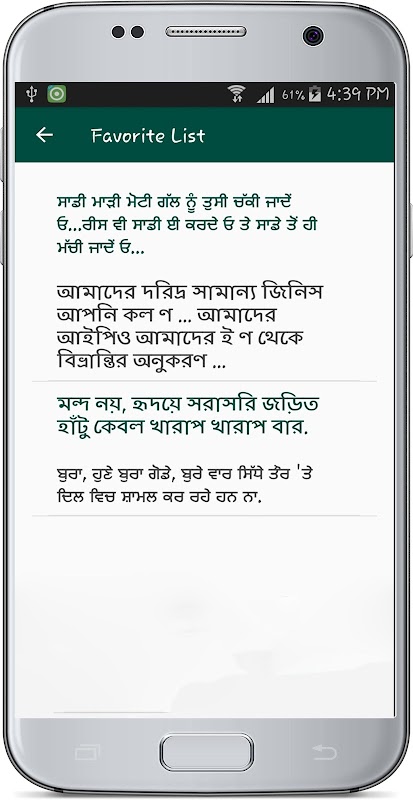 61% 4:39 PM
Favorite List
ਸਾਡੀ ਮਾੜੀ ਮੋਟੀ ਗੱਲ ਨੂੰ ਤੁਸੀ ਚੱਕੀ ਜਾਦੇਂ
ਓ...ਰੀਸ ਵੀ ਸਾਡੀ ਈ ਕਰਦੇ ਓ ਤੇ ਸਾਡੇ ਤੋਂ ਹੀ
ਮੱਚੀ ਜਾਦੇਂ ਓ...
আমাদের দরিদ্র সামান্য জিনিস
আপনি কল ণ ... আমাদের
আইপিও আমাদের ই ণ থেকে
বিভ্রান্তির অনুকরণ ...
মন্দ নয়, হৃদয়ে সরাসরি জড়িত
হাঁটু কেবল খারাপ খারাপ বার.
ਬੁਰਾ, ਹੁਣੇ ਬੁਰਾ ਗੋਡੇ, ਬੁਰੇ ਵਾਰ ਸਿੱਧੇ ਤੌਰ 'ਤੇ
ਦਿਲ ਵਿਚ ਸ਼ਾਮਲ ਕਰ ਰਹੇ ਹਨ ਨਾ.